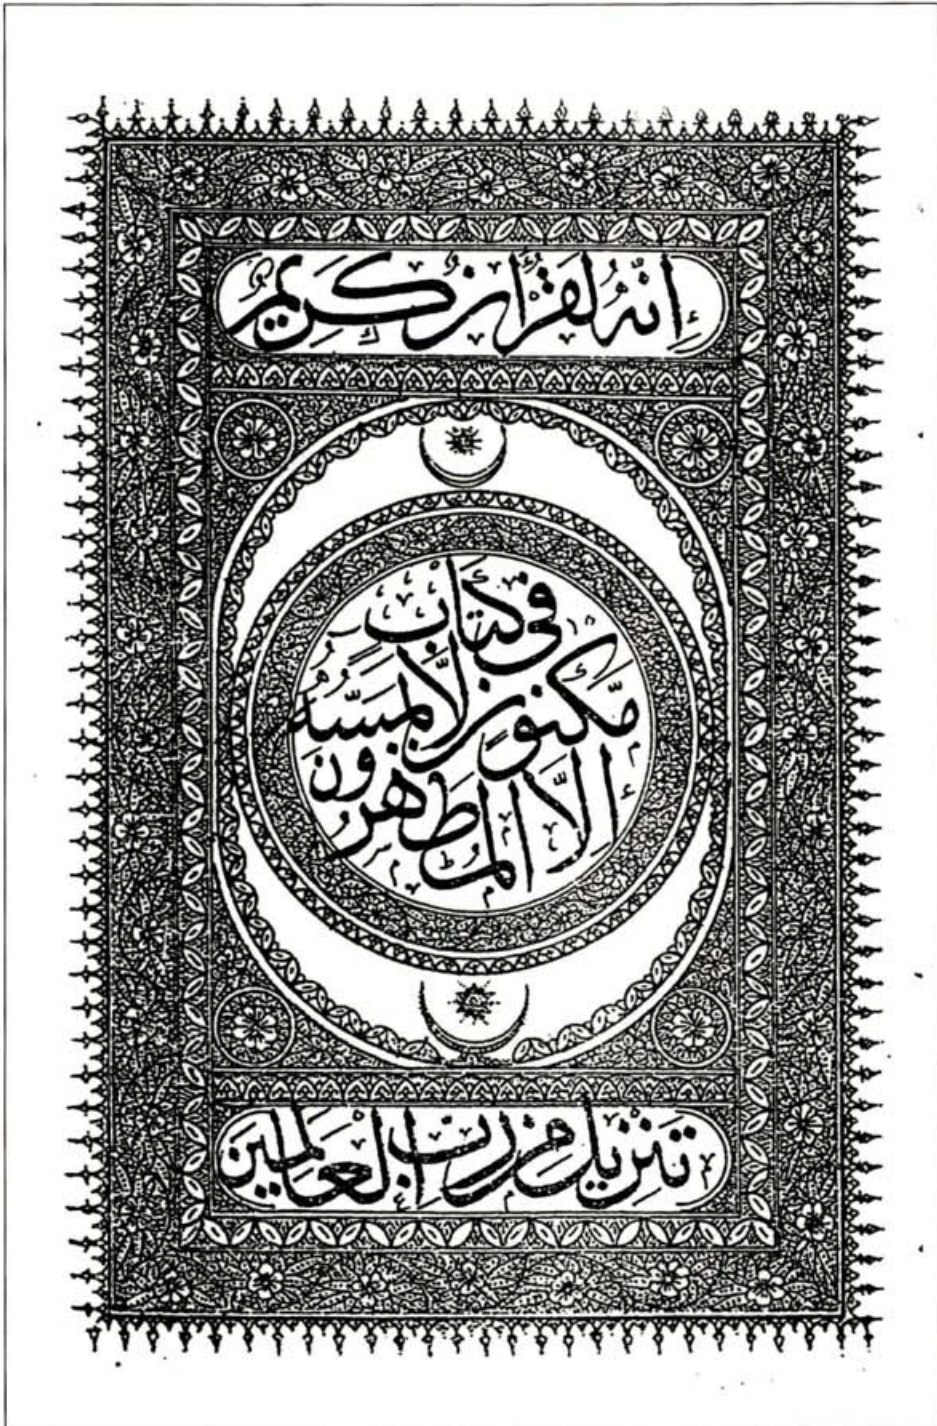 إِنَّهُ لَقُرْآنٌ كَرِيمٌ
فِي كِتَابٍ
مَّكْنُونٍ لَّا يَمَسُّهُ
إِلَّا الْمُطَهَّرُونَ
تَنْزِيلٌ مِّن رَّبِّ الْعَالَمِينَ